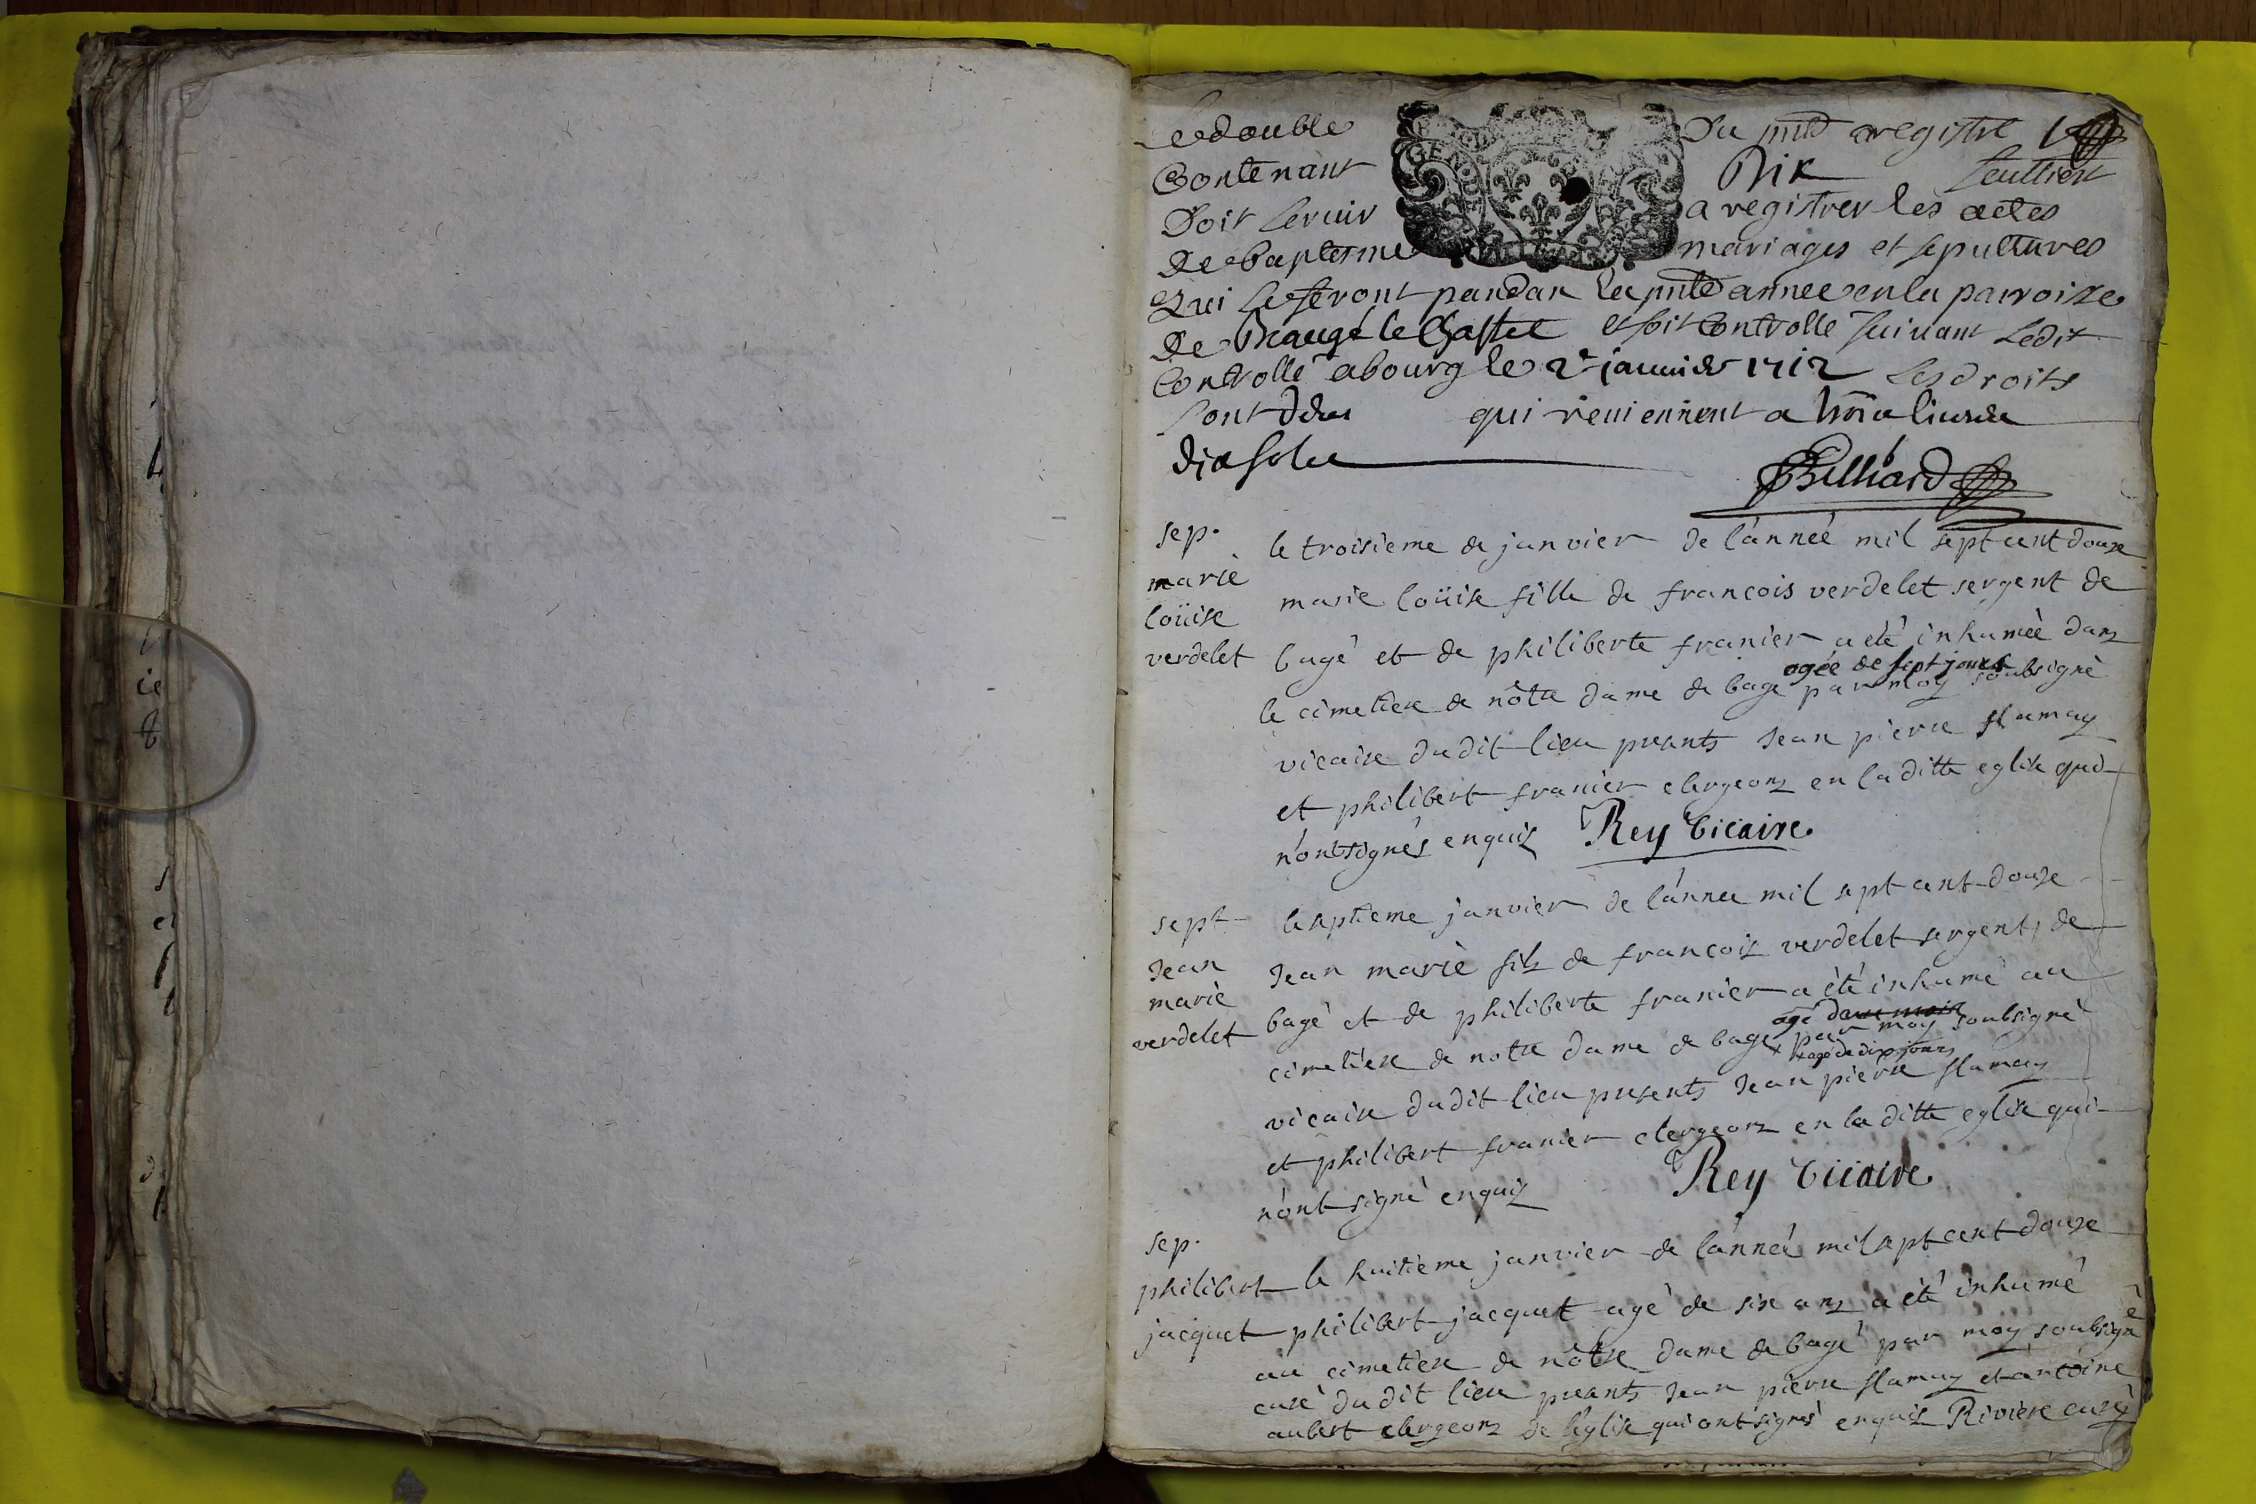 Le double Du pnt registre 1
Contenant Dix feuillets
Doit servir a registrer les actes
De baptesme mariages et sepultures
Qui se feront pandan la pnte année en la parroisse
De Baugé le Chastel et soit Controlle suivant Ledit
Controllé a bourg le 2e janvier 1712 Les droits
sont deus qui reviennent a livre
dix sols
Billiard
sep.
marie
loüise
verdelet
le troisieme de janvier de l'anneé mil sept cent douze
marie loüise fille de francois verdelet sergent de
bagé et de philiberte franier a eté inhumeé dans
agée de sept jours
le cimetiere de nôtre dame de bage par moy soubsigné
vicaire dudit lieu pnts Jean pierre flamay
et philibert franier clergeons en la ditte eglise qui
n'ont signés enquis Rey Vicaire
sept
Jean
marie
verdelet
le septieme janvier de l'anneé mil sept cent douze
Jean marie fils de francois verdelet sergent de
bagé et de philiberte franier a été inhumé au
agé
cimetiere de notre dame de bage + par moy soubsigné
+ agé de dix jours
vicaire dudit lieu presents Jean pierre flamay
et philibert franier clergeons en la ditte eglise qui
n'ont signé enquis Rey Vicaire
sep.
philibert
jacquet
le huitieme janvier de l'anneé mil sept cent douze
philibert jacquet agé de six ans a été inhumé
au cimetiere de nôtre dame de bagé par moy soubsigné
curé dudit lieu pnts Jean pierre flamay et antoine
aubert clergeons de l'eglise qui ont signés enquis Riviere curé